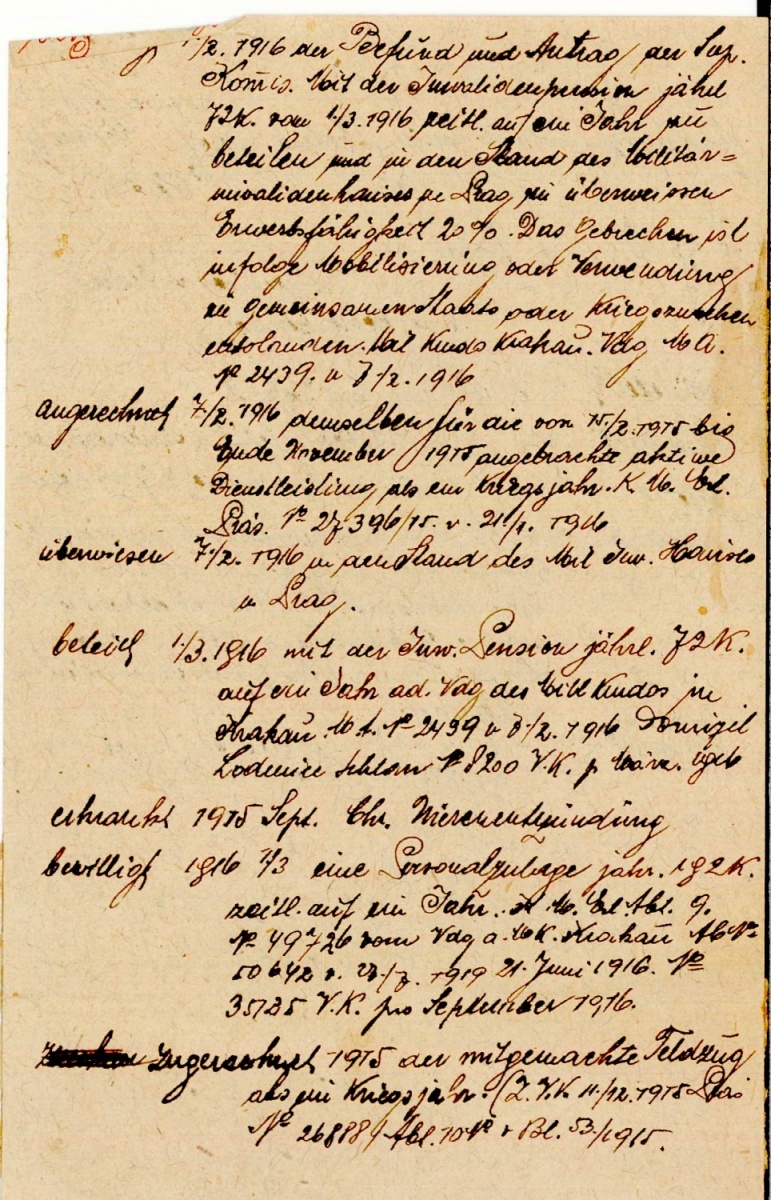 1/2. 1916 der Befund und Antrag der Sup.
Komis. Mit der Invalidenpension jährl
72K. vom 1/3.1916 zeitl. auf ein Jahr zu
beteilen und in den Stand des Militär=
invalidenhauses in Prag zu überweissen
Erwerbsfähigkeit 20%. Das Gebrechen ist
infolge Mobilisierung oder Verwendung
zu gemeinsamen Staats oder Kriegszwecken
entstanden. Mil Kmdo Krakau. Vdg M.A.
No 2439. v 8/2. 1916
angerechnet 7/2. 1916 demselben für die von 15/2. 1915 bis
Ende November 1915 angebrachte aktive
Dienstleistung als ein Kriegsjahr. K. M. Erl.
Präs. No 27396/15. v. 21/1. 1916
überwiesen 7/2. 1916 in den Stand des Mil Inv. Hauses
in Prag.
beteilt 1/3. 1916 mit der Inv. Pension jährl. 72K.
auf ein Jahr ad. Vdg des Mil Kmdos in
Krakau M.A. No 2439 v 8/2. 1916 Domizil
No 8200 V.K. p März.
erkrankt 1915 Sept. Chr. Nierenentzündung
bewilligt 1916 1/3 eine Personalzulage jähr. 192K.
zeitl. auf ein Jahr. K M. Erl. Abt. 9.
No 49726 vom Vdg a. M.K. Krakau Ab No
50642 v. 21. Juni 1916. No
35735 V.K. pro September 1916.
Zugerechnet 1915 der mitgemachte Feldzug
als ein Kriegsjahr. (Z. V.K 11/12. 1915 Präs
No 26888/ Abl. 10 No v Bl. 53/1915.